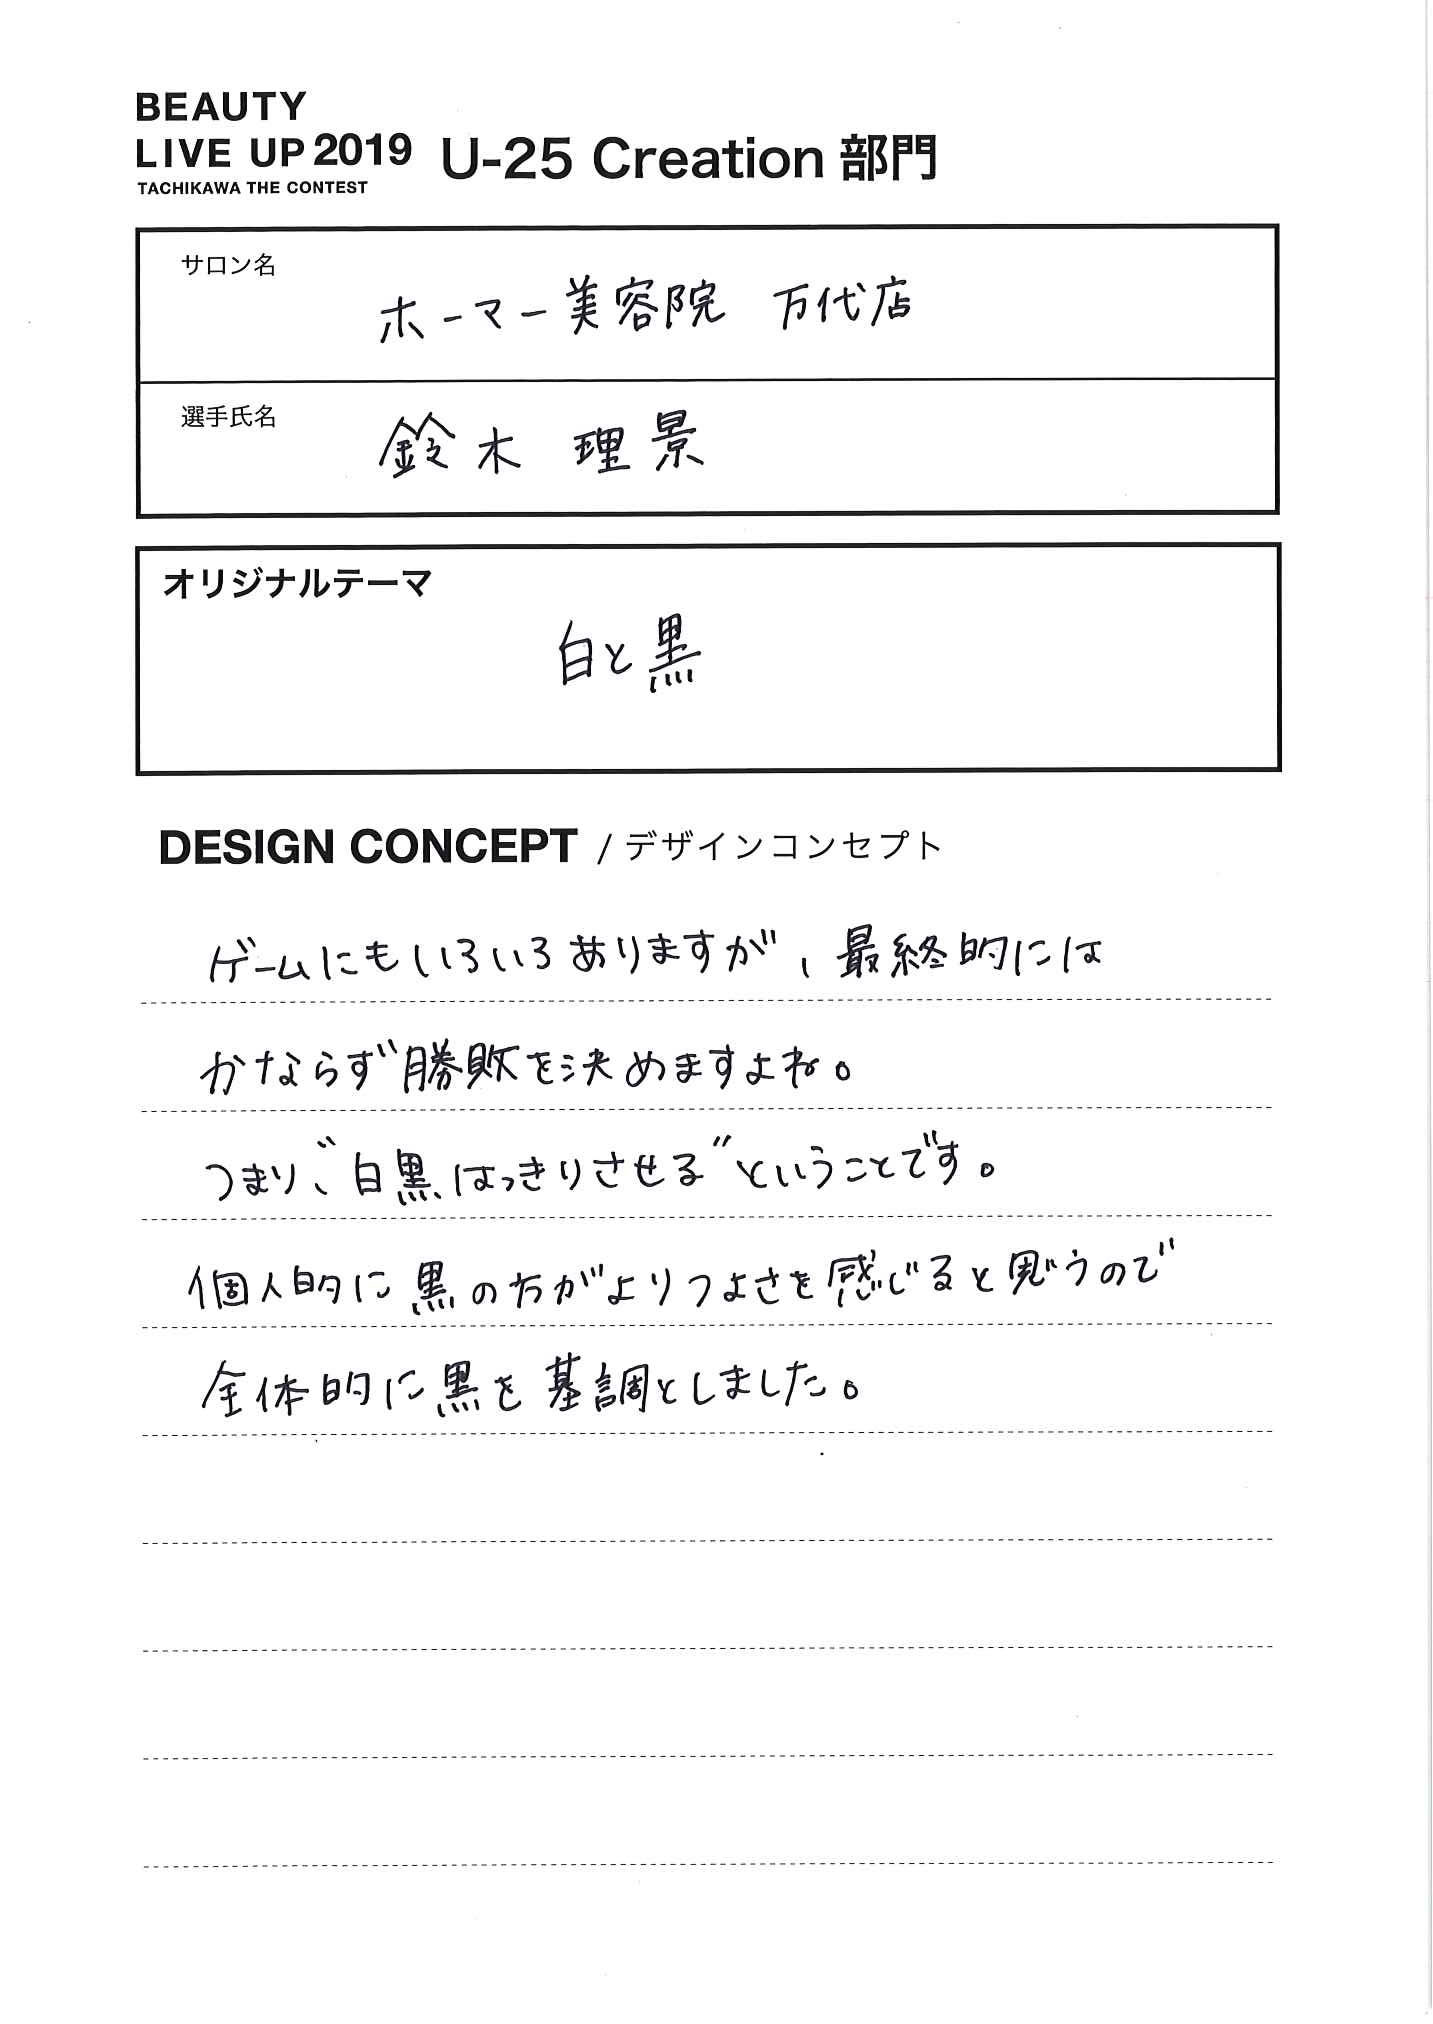 BEAUTY
LIVE UP 2019 U-25 Creation 部門
TACHIKAWA THE CONTEST
サロン名
ホーマー美容院 万代店
選手氏名
鈴木 理景
オリジナルテーマ
白と黒
DESIGN CONCEPT / デザインコンセプト
ゲームにもいろいろありますが、最終的には
かならず勝敗を決めますよね。
つまり、“白黒はっきりさせる”ということです。
個人的に黒の方がよりつよさを感じると思うので
全体的に黒を基調としました。